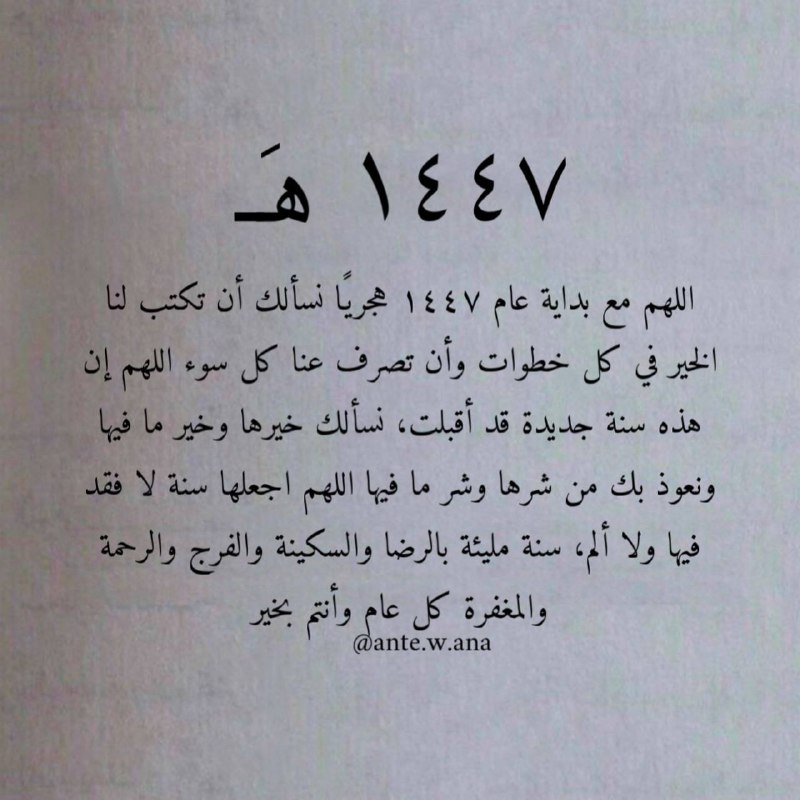 ١٤٤٧ هـَ
اللهم مع بداية عام ١٤٤٧ هجريًا نسألك أن تكتب لنا
الخير في كل خطوات وأن تصرف عنا كل سوء اللهم إن
هذه سنة جديدة قد أقبلت، نسألك خيرها وخير ما فيها
ونعوذ بك من شرها وشر ما فيها اللهم اجعلها سنة لا فقد
فيها ولا ألم، سنة مليئة بالرضا والسكينة والفرج والرحمة
والمغفرة كل عام وأنتم بخير
@ante.w.ana